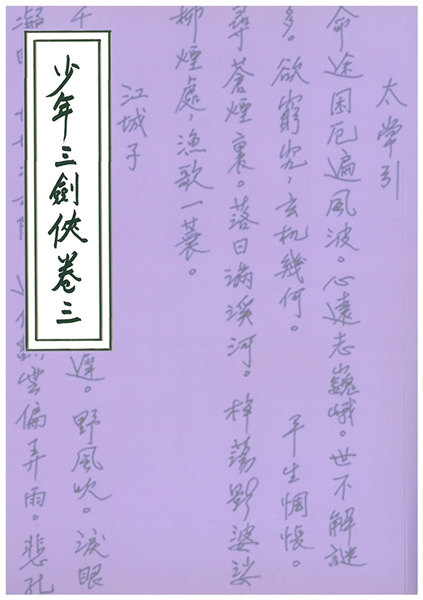 少年三劍俠卷三
太常引
命途困厄遍風波。心遠志巍峨。世不解謎
多。欲窮究，玄机幾何。　平生惆悵。
尋蒼煙裏。落日滿溪河。棹蕩影婆娑
柳煙處，漁歌一蓑。
江城子
遲。野風吹。淚眼
雲偏弄雨。悲孔